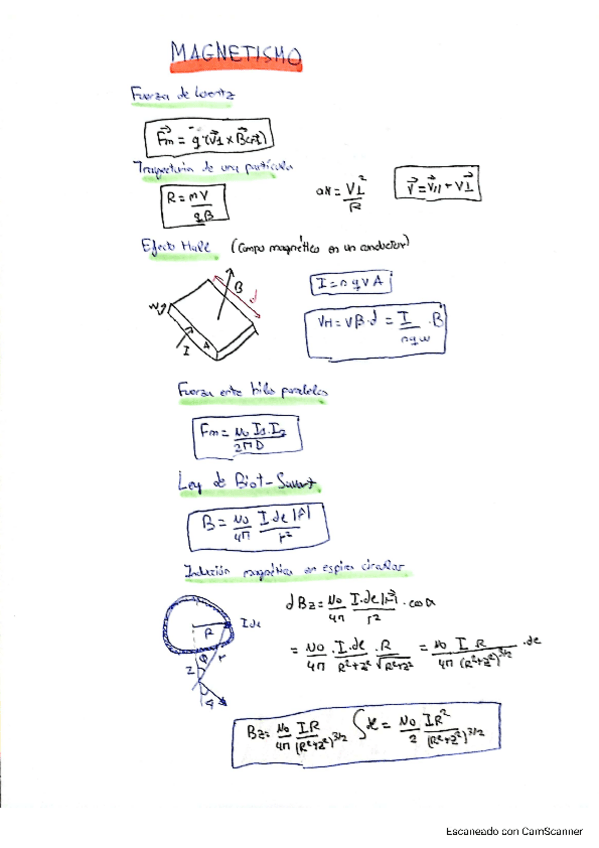 MAGNETISMO
Fuerza de Lorentz
F⃗m = q (V⃗⊥ x B⃗
Trayectoria de una partícula
R = mV / qB    an = V⊥² / R    V⃗ = V⃗// + V⃗⊥
Efecto Hall (Campo magnético en un conductor)
B
d
W
I
A
I = n q V A
VH = VB·d = I / nqw · B
Fuerza entre hilos paralelos
Fm = μ0 I1·I2 / 2πD
Ley de Biot-Savart
B = μ0 / 4π I dl |r⃗| / r²
Inducción magnética en espira circular
R
I dl
Z
r
dBz = μ0 / 4π I·dl |r⃗| / r² · cos α
= μ0 / 4π · I·dl / R²+Z² · R / √R²+Z² = μ0 / 4π I R / (R²+Z²)^3/2 · dl
Bz = μ0 / 4π IR / (R²+Z²)^3/2 ∫dl = μ0 / 2 IR² / (R²+Z²)^3/2
Escaneado con CamScanner